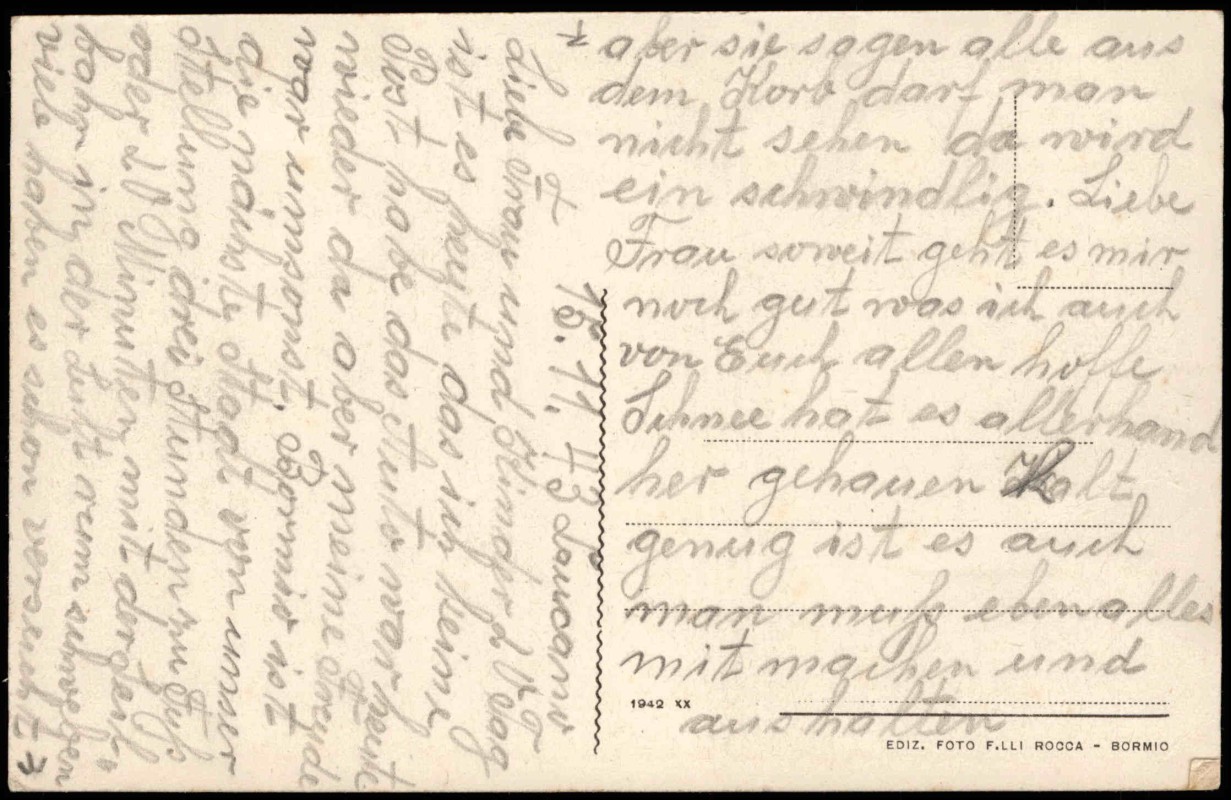 15. 11. 43
Liebe Frau und Kinder 20 Tag
ist es heute das ich keine
Post habe das Auto war heute
wieder da aber meine Freude
war umsonst. Bormio ist
die nächste Stadt von unser
Stellung drei Stunden zu Fuß
oder 20 Minuten mit der Seil
bahn in der Luft rum schweben
viele haben es schon versucht →
aber sie sagen alle aus
dem Korb darf man
nicht sehen da wird
ein schwindlig. Liebe
Frau soweit geht es mir
noch gut was ich auch
von Euch allen hoffe
Schnee hat es allerhand
her gehauen Kalt
genug ist es auch
man muß eben alles
mit machen und
aushalten
1942 XX
EDIZ. FOTO F.LLI ROCCA - BORMIO